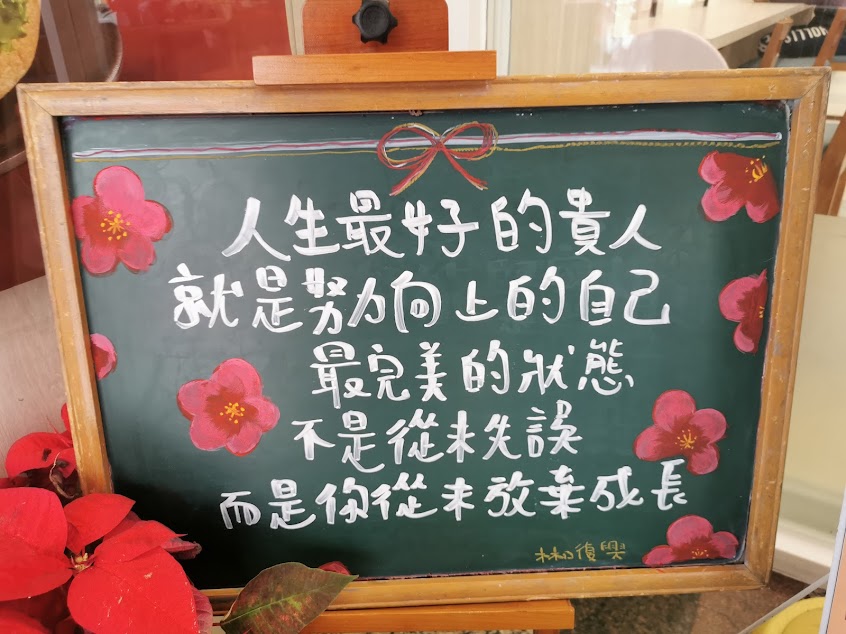 人生最好的貴人
就是努力向上的自己
最完美的狀態
不是從未失誤
而是你從未放棄成長